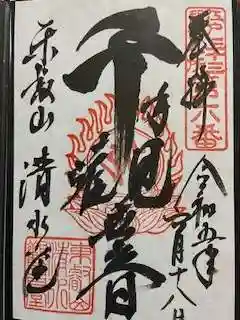 奉拝
令和五年
六月十八日
千手観世音
東叡山
清水堂